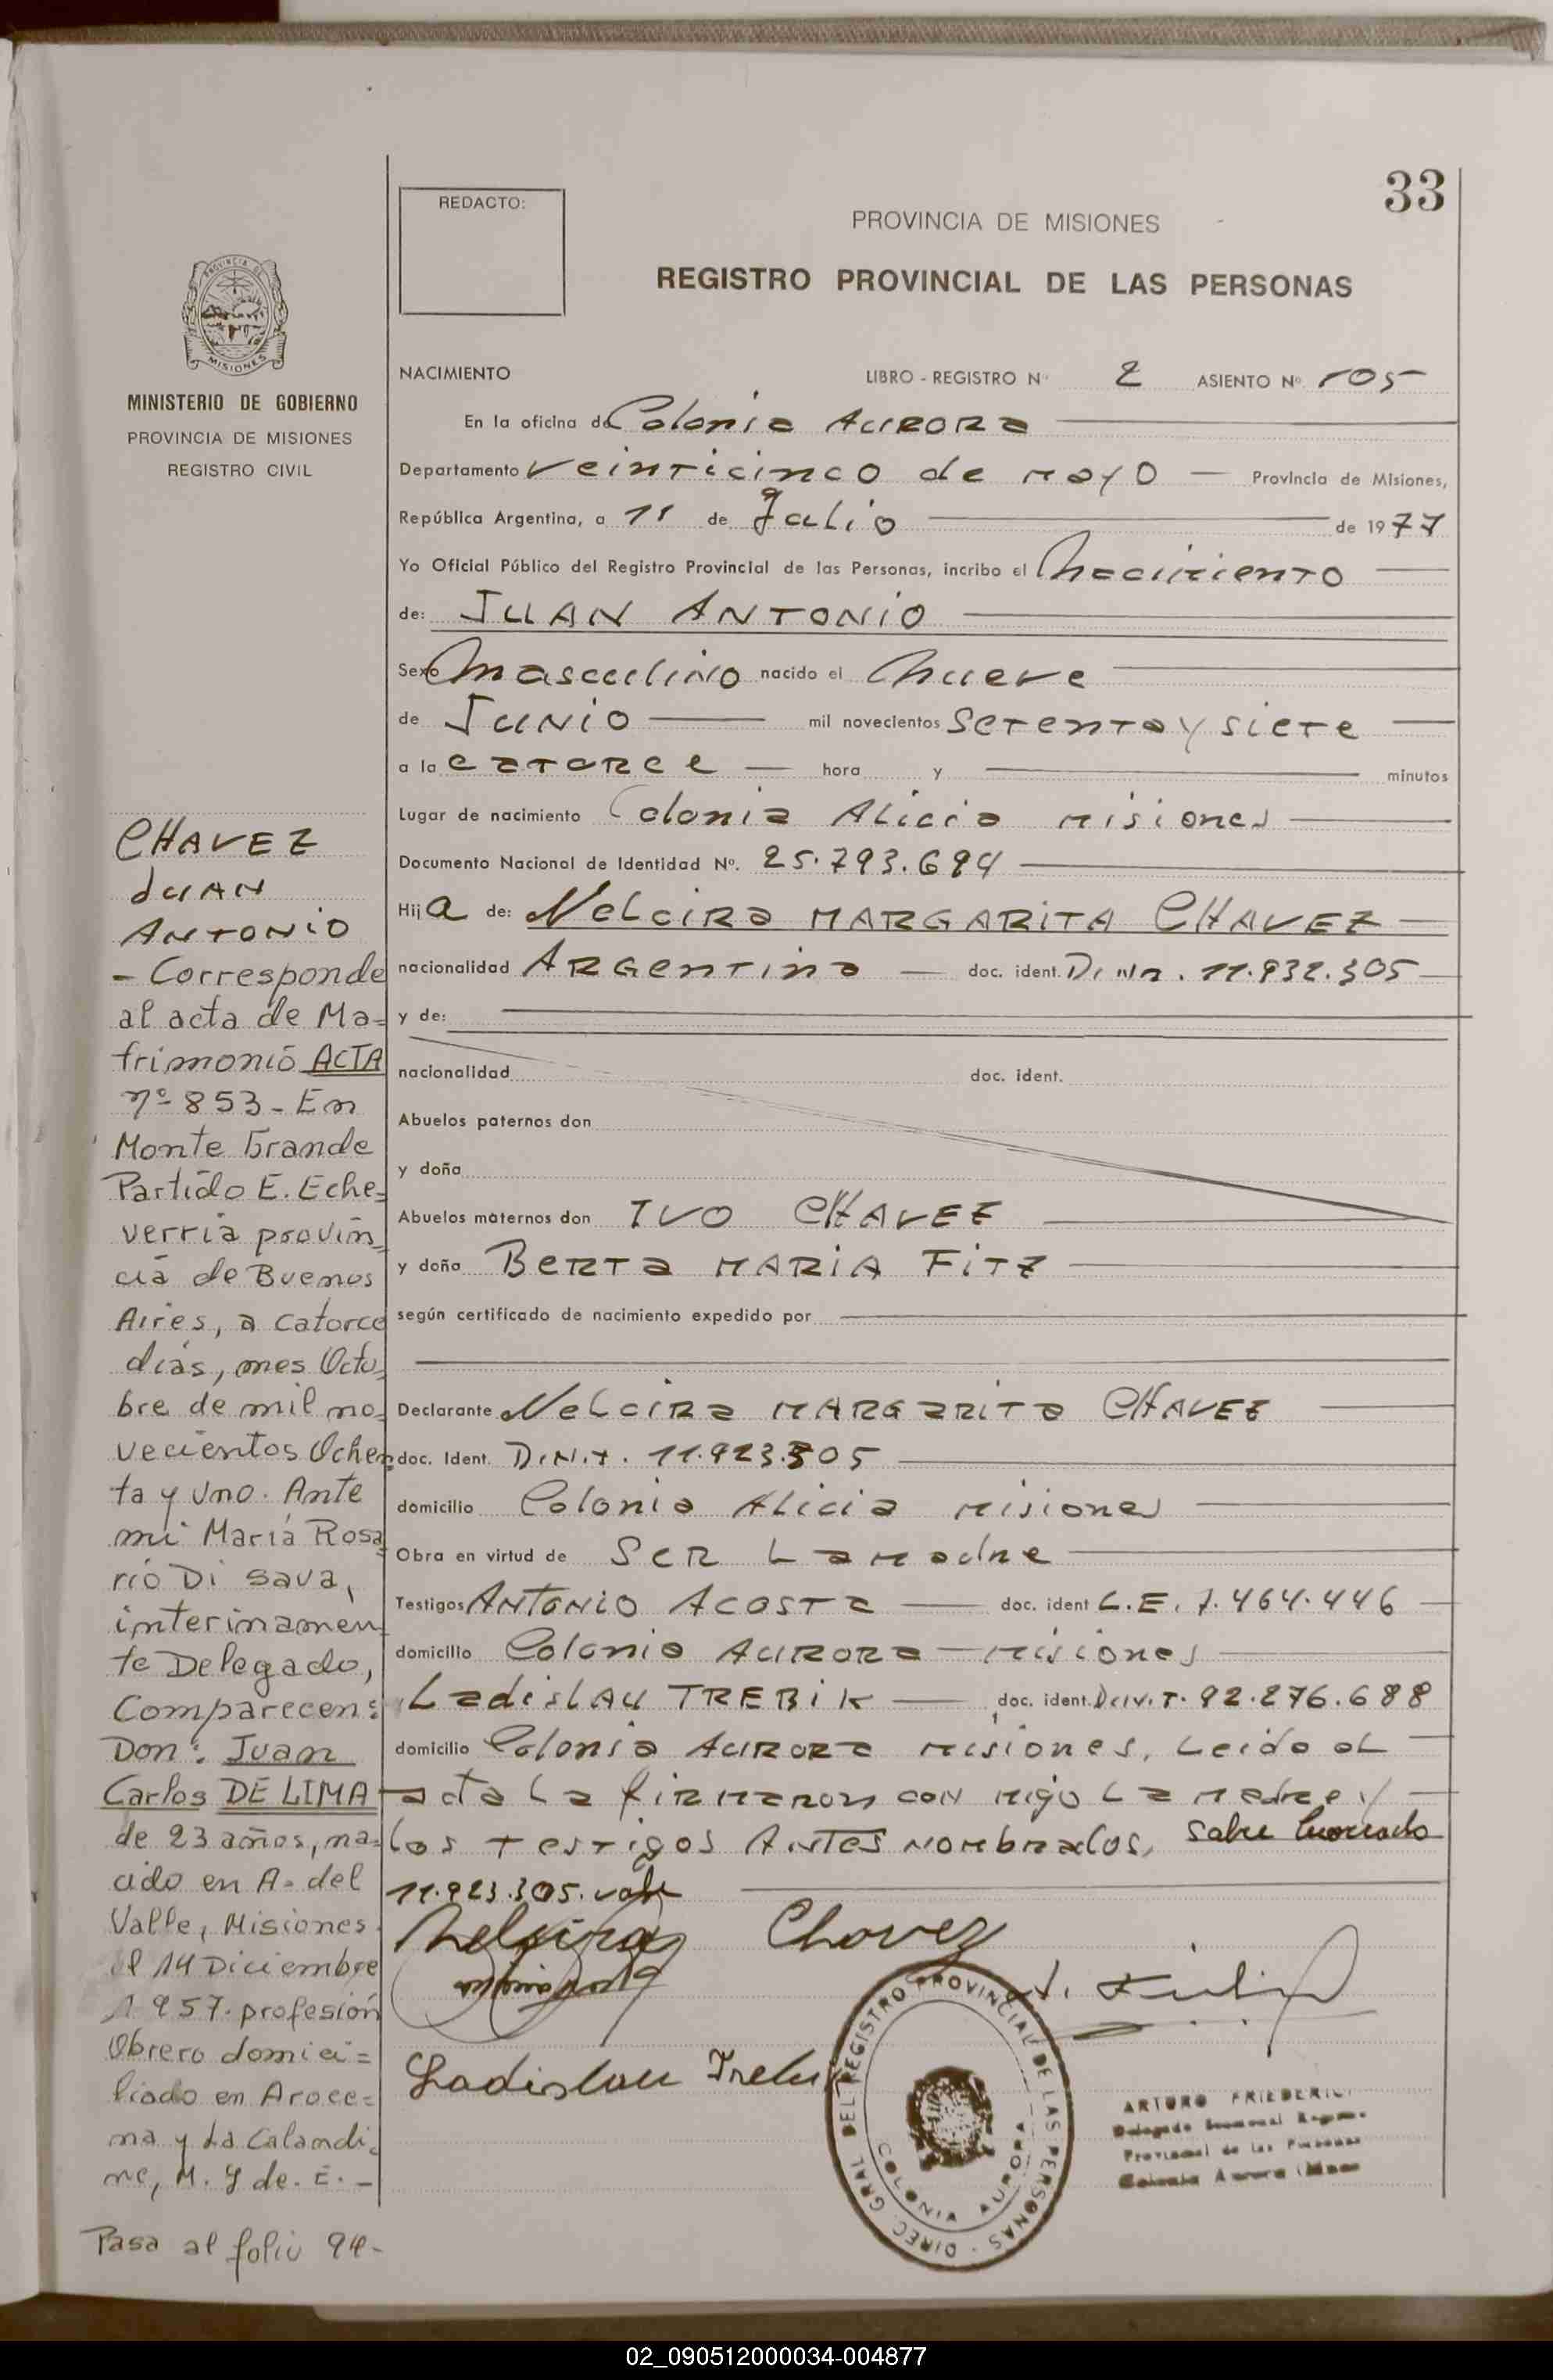 33
REDACTO:
PROVINCIA DE MISIONES
REGISTRO PROVINCIAL DE LAS PERSONAS
PROVINCIA DE
MISIONES
MINISTERIO DE GOBIERNO
PROVINCIA DE MISIONES
REGISTRO CIVIL
NACIMIENTO LIBRO - REGISTRO Nº 2 ASIENTO Nº 105
En la oficina de Colonia AURORA
Departamento veinticinco de mayo Provincia de Misiones,
República Argentina, a 11 de Julio de 1977
Yo Oficial Público del Registro Provincial de las Personas, incribo el Nacimiento
de: JUAN ANTONIO
Sexo Masculino nacido el Nueve
de Junio mil novecientos setenta y siete
a la catorce hora y minutos
Lugar de nacimiento Colonia Alicia Misiones
Documento Nacional de Identidad Nº. 25.793.694
Hij a de: Nelcira MARGARITA CHAVEZ
nacionalidad ARGentina doc. ident. 11.932.305
y de:
nacionalidad doc. ident.
Abuelos paternos don
y doña
Abuelos maternos don IVO CHAVEZ
y doña BERTA MARIA FITZ
según certificado de nacimiento expedido por
Declarante Nelcira MARGARITA CHAVEZ
doc. Ident. D.N.I. 11.923.305
domicilio Colonia Alicia Misiones
Obra en virtud de SER La Madre
Testigos ANTONIO ACOSTA doc. ident L.E. 7.464.446
domicilio Colonia AURORA Misiones
Ladislau TREBIK doc. ident. 92.276.688
domicilio Colonia AURORA Misiones, Leido el
acta La firmaron con migo La Madre y
los testigos Antes nombrados, Sobre borrado
11.923.305. vale
Nelcira Chavez
Margarita
Ladislau
DIREC. GRAL DEL REGISTRO PROVINCIAL DE LAS PERSONAS
COLONIA AURORA
ARTURO FRIEDERICH
Delegado Seccional
Provincial de las Personas
Colonia Aurora
CHAVEZ
JUAN
ANTONIO
- Corresponde
al acta de Ma=
trimonio ACTA
nº 853 - En
Monte Grande
Partido E. Eche=
verria provin=
cia de Buenos
Aires, a catorce
dias, mes Octu=
bre de mil no=
vecientos Ochen=
ta y Uno. Ante
mi Maria Rosa=
rio Di Sava,
interinamen=
te Delegado,
Comparecen:
Don: Juan
Carlos DE LIMA
de 23 años, na=
cido en A. del
Valle, Misiones
el 14 Diciembre
1957. profesión
Obrero domici=
liado en Aroce=
na y La Calandi=
ne, M. y de. E. -
Pasa al folio 94-
02_090512000034-004877